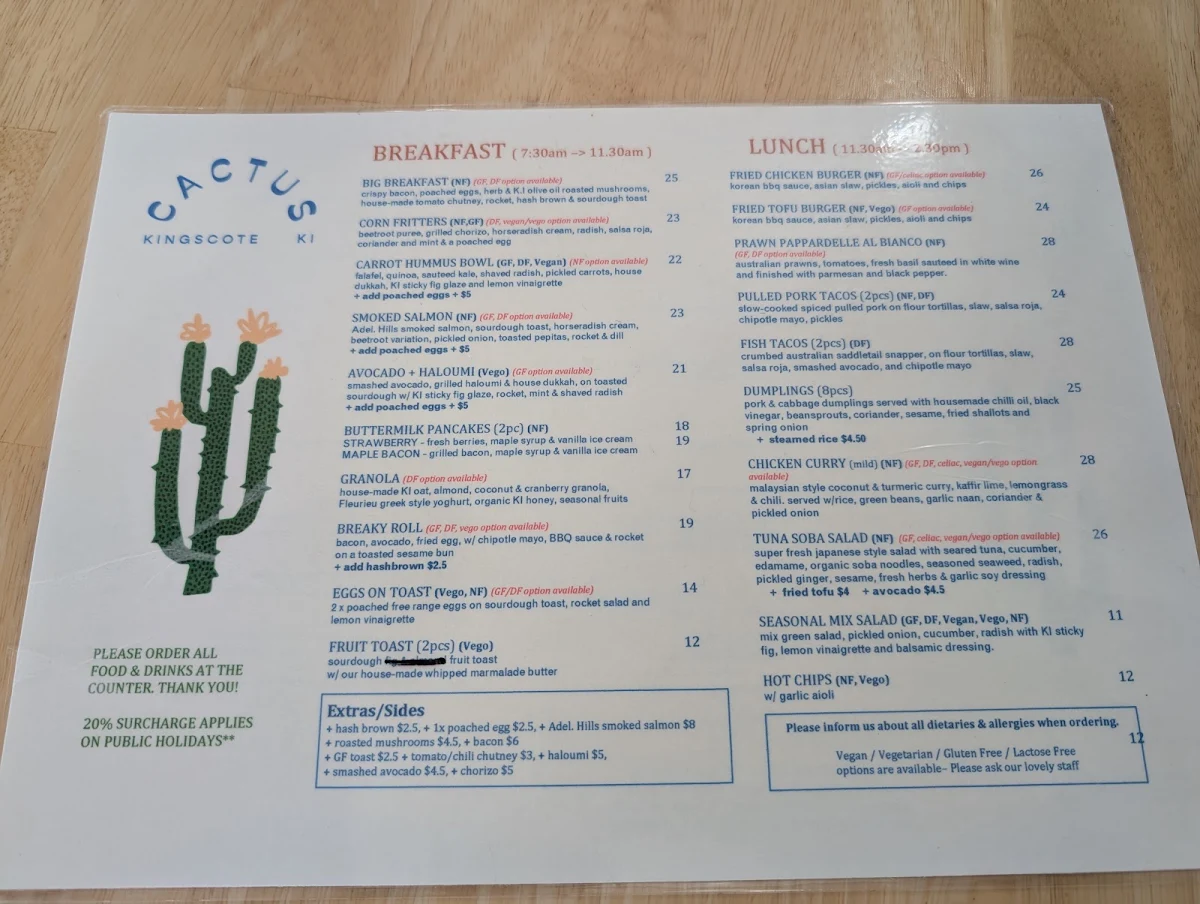 CACTUS
KINGSCOTE KI
PLEASE ORDER ALL
FOOD & DRINKS AT THE
COUNTER. THANK YOU!
20% SURCHARGE APPLIES
ON PUBLIC HOLIDAYS**
BREAKFAST ( 7:30am –> 11.30am )
BIG BREAKFAST (NF) (GF, DF option available) 25
crispy bacon, poached eggs, herb & K.I olive oil roasted mushrooms,
house-made tomato chutney, rocket, hash brown & sourdough toast
CORN FRITTERS (NF,GF) (DF, vegan/vego option available) 23
beetroot puree, grilled chorizo, horseradish cream, radish, salsa roja,
coriander and mint & a poached egg
CARROT HUMMUS BOWL (GF, DF, Vegan) (NF option available) 22
falafel, quinoa, sauteed kale, shaved radish, pickled carrots, house
dukkah, KI sticky fig glaze and lemon vinaigrette
+ add poached eggs + $5
SMOKED SALMON (NF) (GF, DF option available) 23
Adel. Hills smoked salmon, sourdough toast, horseradish cream,
beetroot variation, pickled onion, toasted pepitas, rocket & dill
+ add poached eggs + $5
AVOCADO + HALOUMI (Vego) (GF option available) 21
smashed avocado, grilled haloumi & house dukkah, on toasted
sourdough w/ KI sticky fig glaze, rocket, mint & shaved radish
+ add poached eggs + $5
BUTTERMILK PANCAKES (2pc) (NF) 18
STRAWBERRY – fresh berries, maple syrup & vanilla ice cream 19
MAPLE BACON – grilled bacon, maple syrup & vanilla ice cream
GRANOLA (DF option available) 17
house-made KI oat, almond, coconut & cranberry granola,
Fleurieu greek style yoghurt, organic KI honey, seasonal fruits
BREAKY ROLL (GF, DF, vego option available) 19
bacon, avocado, fried egg, w/ chipotle mayo, BBQ sauce & rocket
on a toasted sesame bun
+ add hashbrown $2.5
EGGS ON TOAST (Vego, NF) (GF/DF option available) 14
2 x poached free range eggs on sourdough toast, rocket salad and
lemon vinaigrette
FRUIT TOAST (2pcs) (Vego) 12
sourdough fruit toast
w/ our house-made whipped marmalade butter
Extras/Sides
+ hash brown $2.5, + 1x poached egg $2.5, + Adel. Hills smoked salmon $8
+ roasted mushrooms $4.5, + bacon $6
+ GF toast $2.5 + tomato/chili chutney $3, + haloumi $5,
+ smashed avocado $4.5, + chorizo $5
LUNCH ( 11.30am 2.30pm )
FRIED CHICKEN BURGER (NF) (GF/celiac option available) 26
korean bbq sauce, asian slaw, pickles, aioli and chips
FRIED TOFU BURGER (NF, Vego) (GF option available) 24
korean bbq sauce, asian slaw, pickles, aioli and chips
PRAWN PAPPARDELLE AL BIANCO (NF) 28
(GF, DF option available)
australian prawns, tomatoes, fresh basil sauteed in white wine
and finished with parmesan and black pepper.
PULLED PORK TACOS (2pcs) (NF, DF) 24
slow-cooked spiced pulled pork on flour tortillas, slaw, salsa roja,
chipotle mayo, pickles
FISH TACOS (2pcs) (DF) 28
crumbed australian saddletail snapper, on flour tortillas, slaw,
salsa roja, smashed avocado, and chipotle mayo
DUMPLINGS (8pcs) 25
pork & cabbage dumplings served with housemade chilli oil, black
vinegar, beansprouts, coriander, sesame, fried shallots and
spring onion
+ steamed rice $4.50
CHICKEN CURRY (mild) (NF) (GF, DF, celiac, vegan/vego option 28
available)
malaysian style coconut & turmeric curry, kaffir lime, lemongrass
& chili. served w/rice, green beans, garlic naan, coriander &
pickled onion
TUNA SOBA SALAD (NF) (GF, celiac, vegan/vego option available) 26
super fresh japanese style salad with seared tuna, cucumber,
edamame, organic soba noodles, seasoned seaweed, radish,
pickled ginger, sesame, fresh herbs & garlic soy dressing
+ fried tofu $4 + avocado $4.5
SEASONAL MIX SALAD (GF, DF, Vegan, Vego, NF) 11
mix green salad, pickled onion, cucumber, radish with KI sticky
fig, lemon vinaigrette and balsamic dressing.
HOT CHIPS (NF, Vego) 12
w/ garlic aioli
Please inform us about all dietaries & allergies when ordering.
12
Vegan / Vegetarian / Gluten Free / Lactose Free
options are available– Please ask our lovely staff